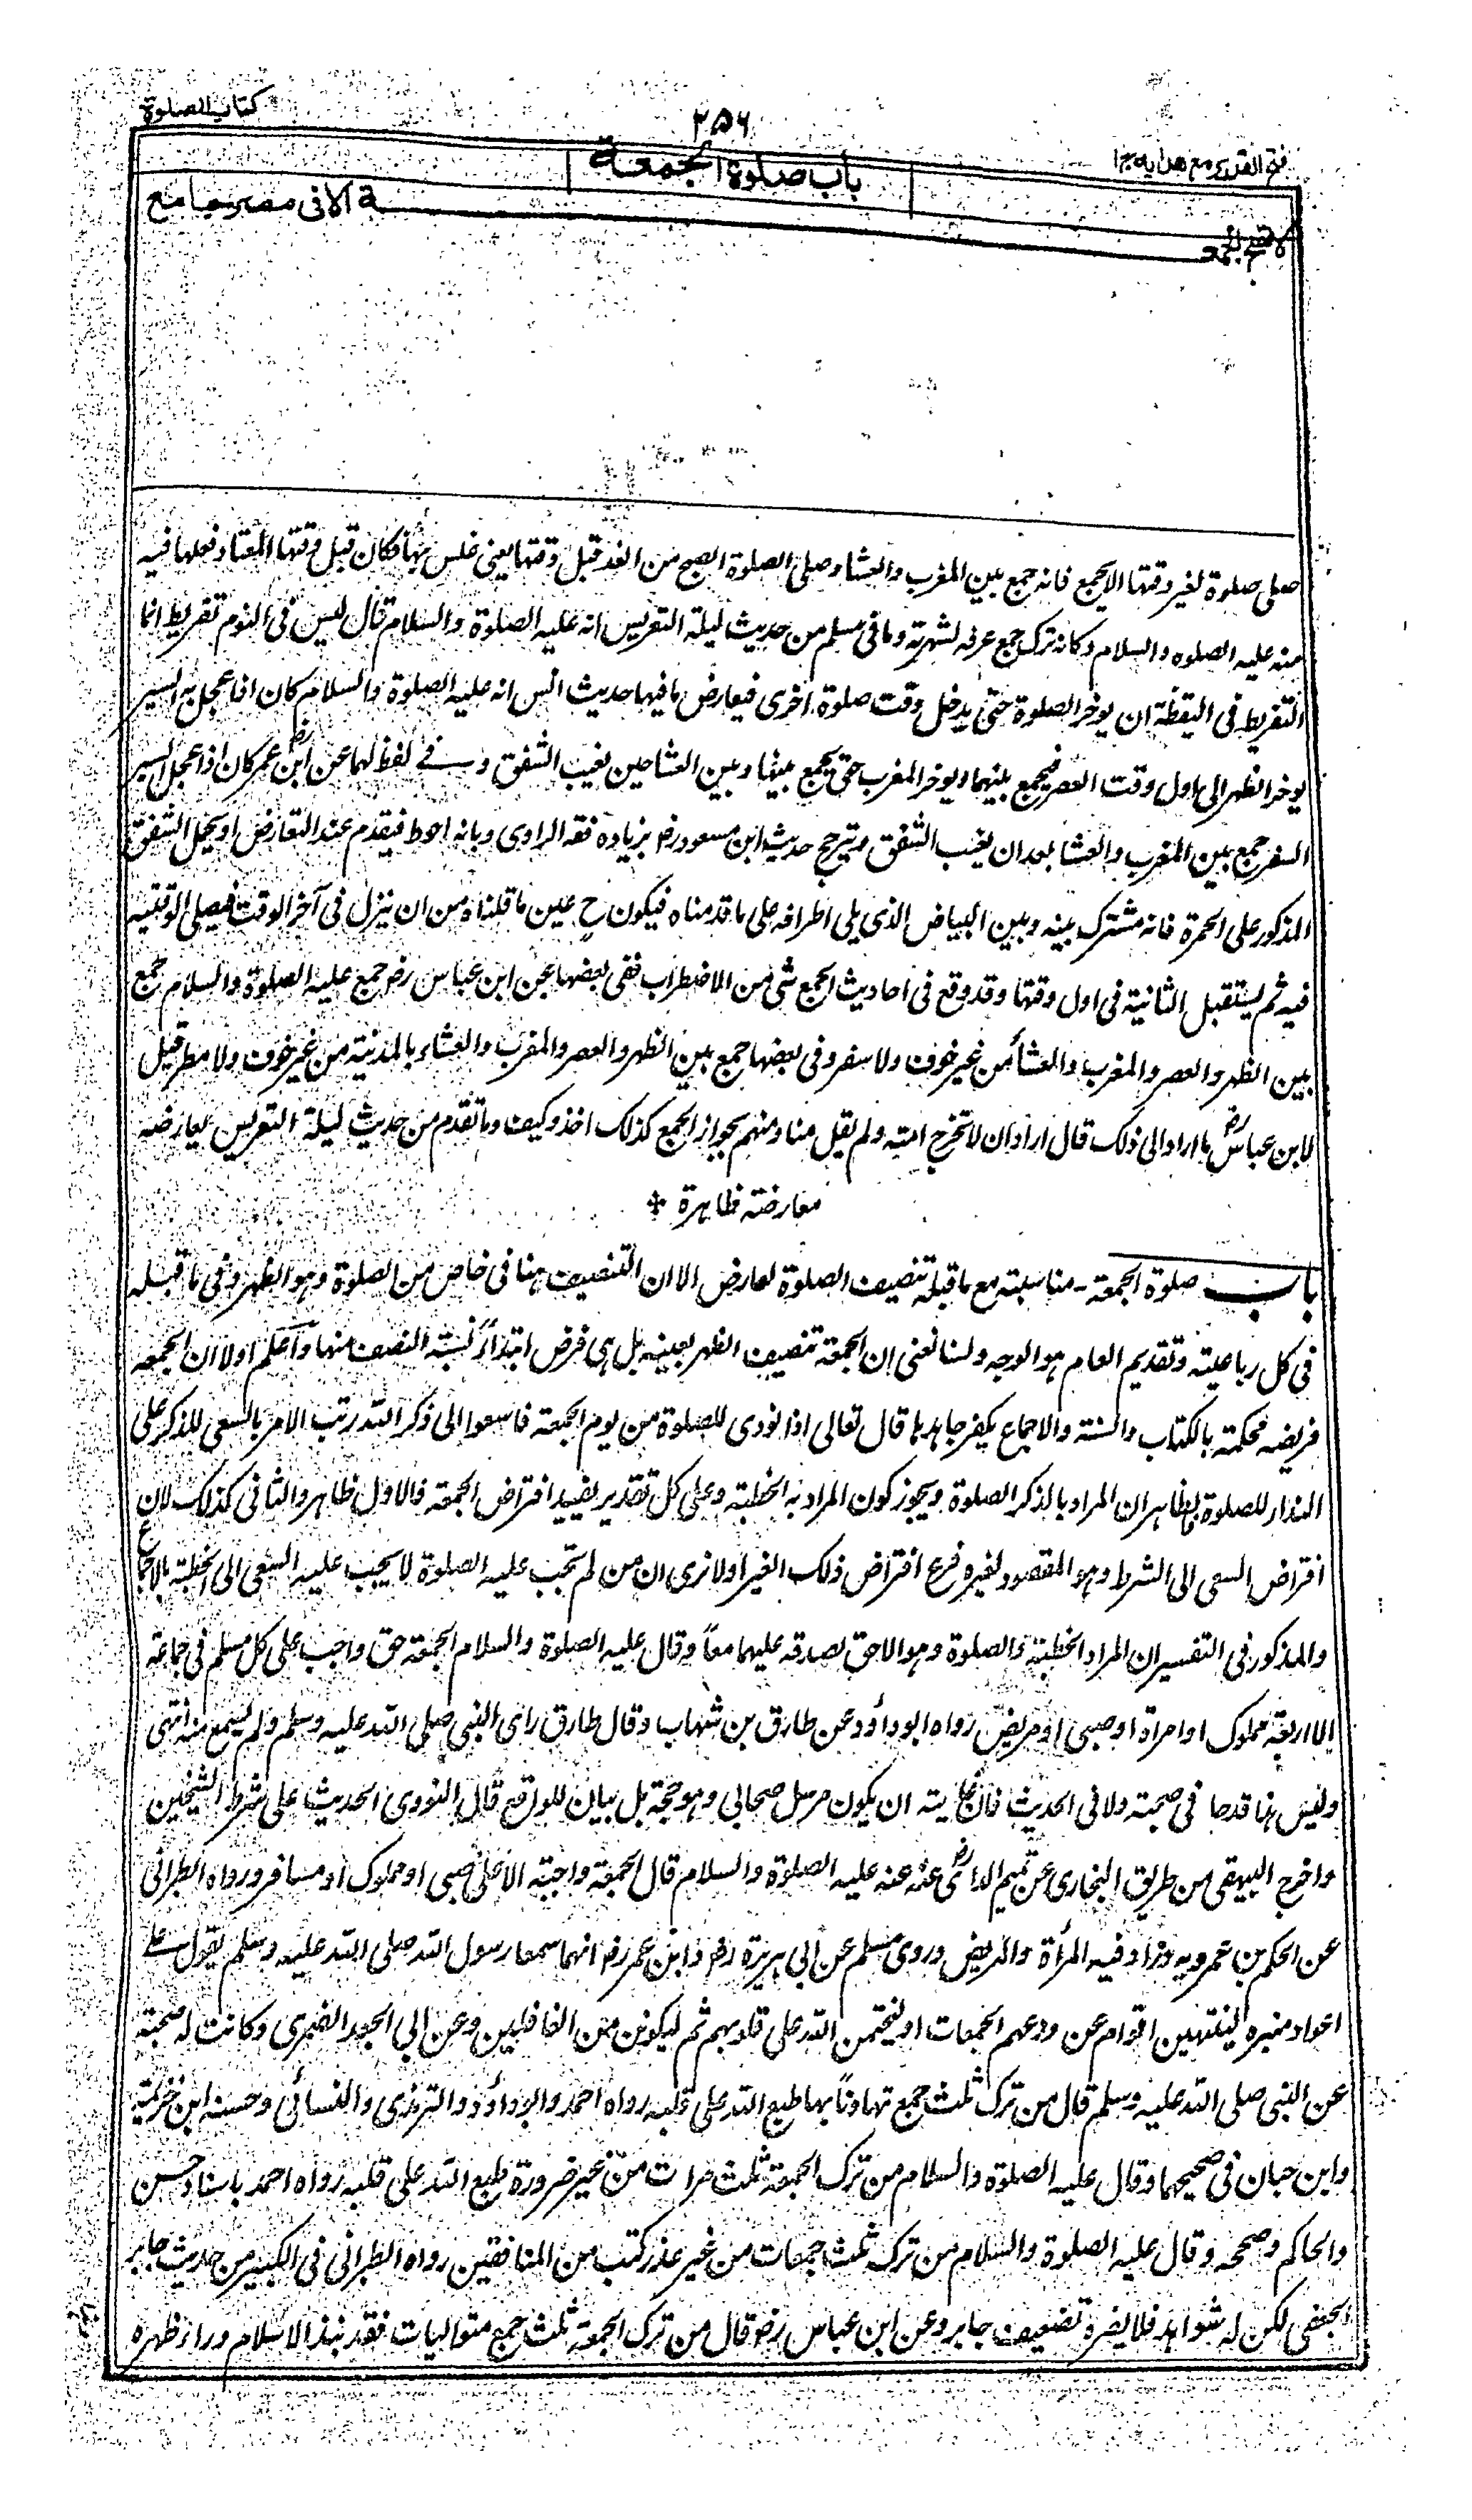 كتاب الصلوة
٣٥٦
فتح القدير مع هدايه ج ١
باب صلوة الجمعة
لا تصح الجمعة الا فى مصر جامع
صلى صلوة لغير وقتها الا بجمع فانه جمع بين المغرب والعشا وصلى الصلوة الصبح من الغد قبل وقتها يعنى غلس بها فكان قبل وقتها المعتاد فعلها فيه
منه عليه الصلوة والسلام وكانه ترك جمع عرفه لشهرته وما فى مسلم من حديث ليلة التعريس انه عليه الصلوة والسلام قال ليس فى النوم تفريط انما
التفريط فى اليقظة ان يوخر الصلوة حتى يدخل وقت صلوة اخرى فيعارض ما فيها حديث انس انه عليه الصلوة والسلام كان اذا عجل به السير
يوخر الظهر الى اول وقت العصر فيجمع بينهما ويوخر المغرب حتى يجمع بينها وبين العشا حين يغيب الشفق وفى لفظ لهما عن ابن عمر رض كان اذا عجل السير
السفر جمع بين المغرب والعشا بعد ان يغيب الشفق ويترجح حديث ابن مسعود رض بزيادة فقه الراوى وبانه احوط فيقدم عند التعارض او يحمل الشفق
المذكور على الحمرة فانه مشترك بينه وبين البياض الذى يلى اطرافه على ما قدمناه فيكون ح عين ما قلناه من ان ينزل فى آخر الوقت فيصلى الوقتية
فيه ثم يستقبل الثانية فى اول وقتها وقد وقع فى احاديث الجمع شئ من الاضطراب ففى بعضها عن ابن عباس رض جمع عليه الصلوة والسلام جمع
بين الظهر والعصر والمغرب والعشأ من غير خوف ولا سفر وفى بعضها جمع بين الظهر والعصر والمغرب والعشاء بالمدنية من غير خوف ولا مطر قيل
لابن عباس رض ما اراد الى ذلك قال اراد ان لا تحرج امته ولم يقل منا ومنهم بجواز الجمع كذلك اخذ وكيف وما تقدم من حديث ليلة التعريس يعارضه
معارضة ظاهرة
باب صلوة الجمعة - مناسبته مع ما قبله تنصيف الصلوة لعارض الا ان التنصيف هنا فى خاص من الصلوة وهو الظهر وفى ما قبله
فى كل رباعية وتقديم العام هو الوجه ولسنا نعنى ان الجمعة تنصيف الظهر بعينه بل هى فرض ابتدأ نسبته النصف منها واعلم اولا ان الجمعة
فريضه محكمة بالكتاب والسنة والاجماع يكفر جاحدها قال تعالى اذا نودى للصلوة من يوم الجمعة فاسعوا الى ذكر الله رتب الامر بالسعى للذكر على
النداء للصلوة فالظاهر ان المراد بالذكر الصلوة ويجوز كون المراد به الخطبة وعلى كل تقدير يفيد افتراض الجمعة فالاول ظاهر والثانى كذلك لان
افتراض السعى الى الشرط وهو المقصود لغيره فرع افتراض ذلك الغير اولا ترى ان من لم تجب عليه الصلوة لا يجب عليه السعى الى الخطبة بالاجماع
والمذكور فى التفسير ان المراد الخطبة والصلوة وهو الاحق لصدقه عليهما معاً وقال عليه الصلوة والسلام الجمعة حق واجب على كل مسلم فى جماعة
الا اربعة مملوك او امراة او صبى او مريض رواه ابو دأود عن طارق بن شهاب وقال طارق راى النبى صلى الله عليه وسلم ولم يسمع منه انتهى
وليس هذا قدحا فى صحبته ولا فى الحديث فان غايته ان يكون مرسل صحابى وهو حجة بل بيان للواقع قال النووى الحديث على شرط الشيخين
واخرج البيهقى من طريق البخارى عن تميم الدارى رض عنه عليه الصلوة والسلام قال الجمعة واجبة الا على صبى او مملوك او مسافر ورواه الطبرانى
عن الحكم بن عمرو به وزاد فيه المرأة والمريض وروى مسلم عن ابى هريرة رض وابن عمر رض انهما سمعا رسول الله صلى الله عليه وسلم يقول على
اعواد منبره لينتهين اقوام عن ودعهم الجمعات او ليختمن الله على قلوبهم ثم ليكونن من الغافلين وعن ابى الجعد الضمرى وكانت له صحبة
عن النبى صلى الله عليه وسلم قال من ترك ثلث جمع تهاونًا بها طبع الله على قلبه رواه احمد وابو دأود والترمذى والنسائى وحسنه ابن خزيمة
وابن حبان فى صحيحهما وقال عليه الصلوة والسلام من ترك الجمعة ثلث مرات من غير ضرورة طبع الله على قلبه رواه احمد باسناد حسن
والحاكم وصححه وقال عليه الصلوة والسلام من ترك ثلث جمعات من غير عذر كتب من المنافقين رواه الطبرانى فى الكبير من حديث جابر
الجعفى لكن له شواهد فلا يضره تضعيف جابر وعن ابن عباس رض قال من ترك الجمعة ثلث جمع متواليات فقد نبذ الاسلام وراء ظهره